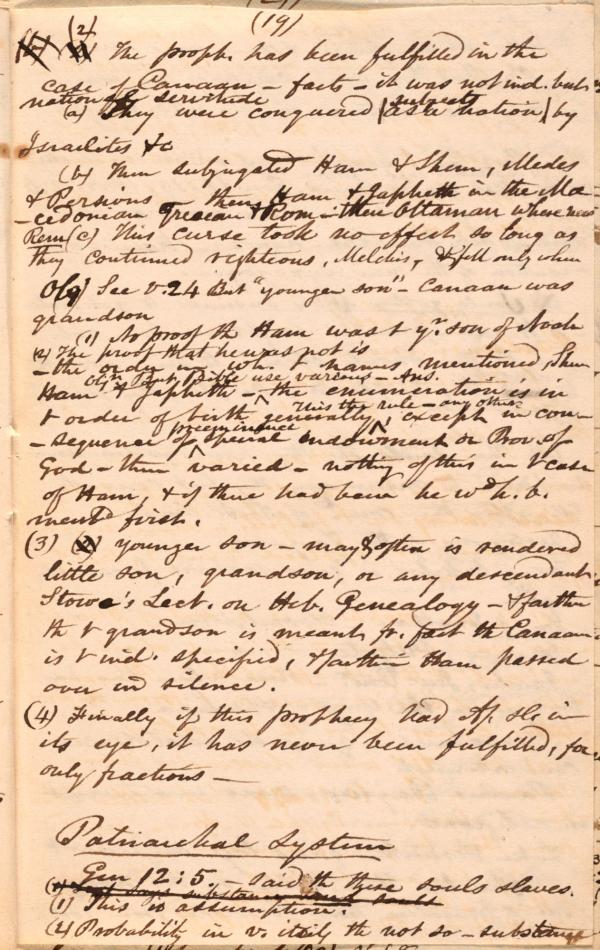 (19)
(2) The proph. has been fulfilled in the
case of Canaan - facts - it was not ind. but
national servitude
(a) They were conquered | as a nation | by
subject
Israelites &c
(b) Then subjugated Ham & Shem, Medes
& Persians - then Ham & Japheth in the Ma-
-cedonian Grecian & Rom - then Ottaman where now
Rem (c) This curse took no effect so long as
they continued righteous, Melchis, & fell only when
Obj See v. 24 But "younger son" - Canaan was
grandson
(1) No proof th Ham was t yr. son of Noah
(2) The proof that he was not is
- the order in wh. t names mentioned, Shem
Ham & Japheth - the enumeration is in
Obj in Put. Bible use various - Ans.
t order of birth generally, except in con-
This the rule - any other
- sequence of special endowment or Prov. of
preeminence
God - then varied - nothing of this in t case
of Ham, & if there had been he wd h. b.
mentd first.
(3) younger son - may & often is rendered
little son, grandson, or any descendant.
Stowe's Lect. on Heb. Genealogy - & farther
th t grandson is meant fr. fact th Canaan
is t ind. specified, & farther Ham passed
over in silence.
(4) Finally if this prophecy had Af. Sl. in
its eye, it has never been fulfilled, for
only fractions -
Patriarchal System
Gen 12:5. - said th these souls slaves.
(1) This is assumption.
(2) Probability in v. itself th not so - substance